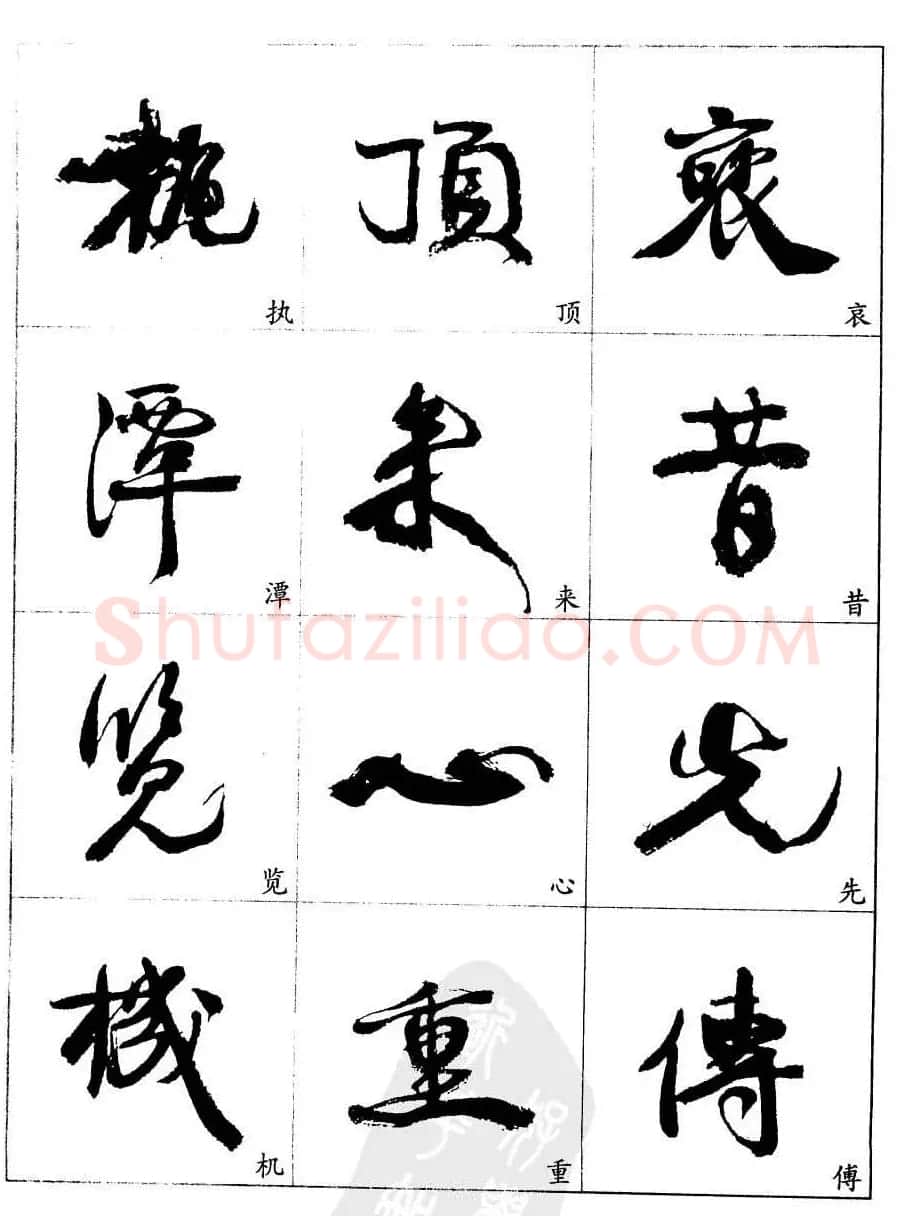 執 頂 哀
执 顶 哀
潭 来 昔
潭 来 昔
Shufaziliao.COM
覧 心 先
览 心 先
機 重 傳
机 重 傅